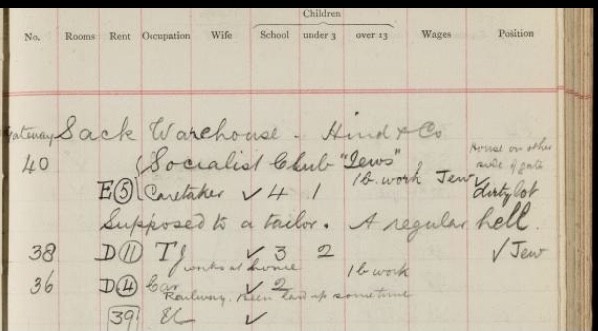 Children
No. Rooms Rent Occupation Wife School under 3 over 13 Wages Position
Gateway Sack Warehouse - Hind & Co
40 (Socialist Club "Jews" House on other side of gate
E (5) Caretaker ✓ 4 1 1 b. work Jew ✓ dirty lot
Supposed to a tailor. A regular hell.
38 D (11) ✓ 3 2 ✓ Jew
works at home 1 b work
36 D (4) Car ✓ 2
Railway. Been laid up some time
39 ✓